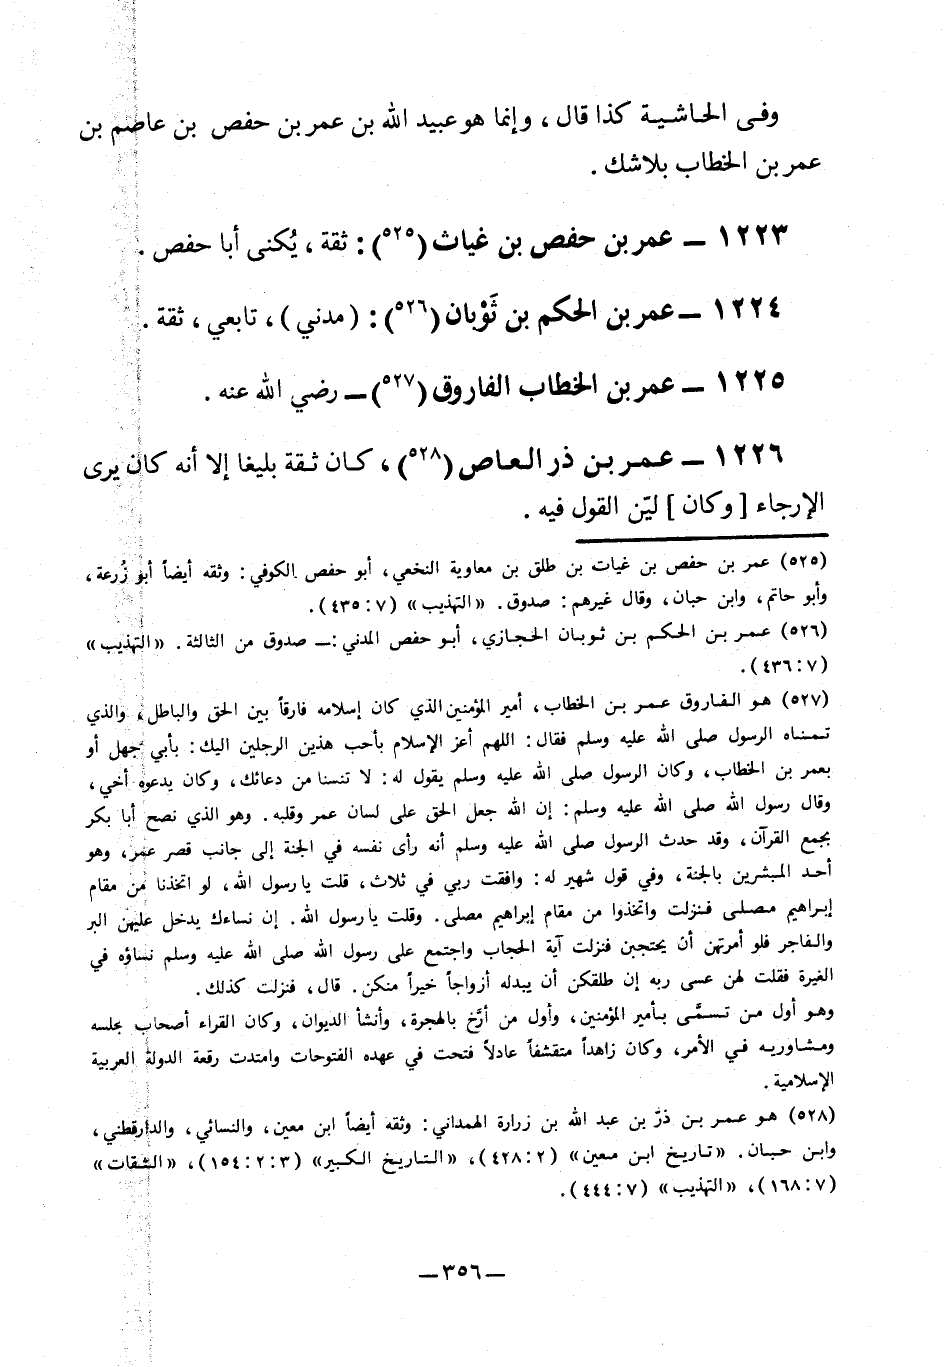 وفى الحاشية كذا قال ، وإنما هو عبيد الله بن عمر بن حفص بن عاصم بن
عمر بن الخطاب بلاشك .
١٢٢٣ ـ عمر بن حفص بن غياث (٥٢٥) : ثقة ، يُكنى أبا حفص .
١٢٢٤ ـ عمر بن الحكم بن ثَوْبان (٥٢٦) : (مدني) ، تابعي ، ثقة .
١٢٢٥ ـ عمر بن الخطاب الفاروق (٥٢٧) ـ رضي الله عنه .
١٢٢٦ ـ عمر بن ذر العاص (٥٢٨) ، كان ثقة بليغا إلا أنه كان يرى
الإرجاء [ وكان ] ليّن القول فيه .
(٥٢٥) عمر بن حفص بن غياث بن طلق بن معاوية النخعي، أبو حفص الكوفي: وثقه أيضاً أبو زُرعة،
وأبو حاتم، وابن حبان، وقال غيرهم: صدوق. «التهذيب» (٧: ٤٣٥).
(٥٢٦) عمر بن الحكم بن ثوبان الحجازي، أبو حفص المدني :ـ صدوق من الثالثة. «التهذيب»
(٧: ٤٣٦).
(٥٢٧) هو الفاروق عمر بن الخطاب، أمير المؤمنين الذي كان إسلامه فارقاً بين الحق والباطل، والذي
تمناه الرسول صلى الله عليه وسلم فقال: اللهم أعز الإسلام بأحب هذين الرجلين اليك: بأبي جهل أو
بعمر بن الخطاب، وكان الرسول صلى الله عليه وسلم يقول له: لا تنسنا من دعائك، وكان يدعوه أخي،
وقال رسول الله صلى الله عليه وسلم: إن الله جعل الحق على لسان عمر وقلبه. وهو الذي نصح أبا بكر
بجمع القرآن، وقد حدث الرسول صلى الله عليه وسلم أنه رأى نفسه في الجنة إلى جانب قصر عمر، وهو
أحد المبشرين بالجنة، وفي قول شهير له: وافقت ربي في ثلاث، قلت يا رسول الله، لو اتخذنا من مقام
إبراهيم مصلى فنزلت واتخذوا من مقام إبراهيم مصلى. وقلت يا رسول الله. إن نساءك يدخل عليهن البر
والفاجر فلو أمرتهن أن يحتجبن فنزلت آية الحجاب واجتمع على رسول الله صلى الله عليه وسلم نساؤه في
الغيرة فقلت لهن عسى ربه إن طلقكن أن يبدله أزواجاً خيراً منكن. قال، فنزلت كذلك.
وهو أول من تسمَّى بأمير المؤمنين، وأول من أرَّخ بالهجرة، وأنشأ الديوان، وكان القراء أصحاب مجلسه
ومشاوريه في الأمر، وكان زاهداً متقشفاً عادلاً فتحت في عهده الفتوحات وامتدت رقعة الدولة العربية
الإسلامية.
(٥٢٨) هو عمر بن ذرّ بن عبد الله بن زرارة الهمداني: وثقه أيضاً ابن معين، والنسائي، والدارقطني،
وابن حبان. «تاريخ ابن معين» (٢: ٤٢٨)، «التاريخ الكبير» (٣: ٢: ١٥٤)، «الثقات»
(٧: ١٦٨)، «التهذيب» (٧: ٤٤٤).
ـ ٣٥٦ ـ